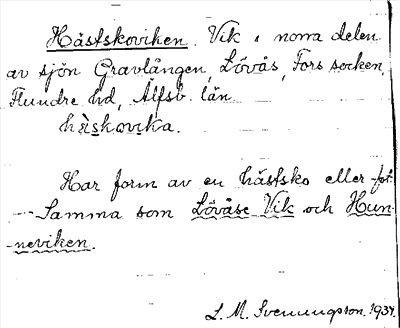 Hästskoviken. Vik i norra delen
av sjön Gravlången, Lövås, Fors socken,
Flundre hd, Älfsb. län.
hä̀skovika.
Har form av en hästsko eller fot.
Samma som Lövåse Vik och Hun-
neviken.
L. M. Svenungsson. 1934.